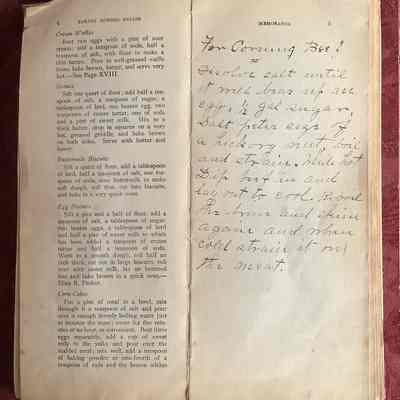 4
Cream Waffles
Beat two eggs with a pint of sour
cream; add a teaspoon of soda, half a
teaspoon of salt, with flour to make a
thin batter. Pour in well-greased waffle
irons, bake brown, butter, and serve very
hot.—See Page XVIII.
Sift one quart of flour; add a tea-
spoon of salt, a teaspoon of sugar, a
tablespoon of lard, one beaten egg, two
teaspoons of cream tartar, one of soda
and a pint of sweet milk. Mix to a
thick batter, drop in squares on a very
hot, greased griddle, and bake brown
on both sides. Serve with butter and
honey.
Buttermilk Biscuits
Sift a quart of flour, add a tablespoon
of lard, half a teaspoon of salt, one tea-
spoon of soda, sour buttermilk, to make
soft dough, roll thin, cut into biscuits,
and bake in a very quick oven.
Egg Biscuits
Sift a pint and a half of flour, add a
teaspoon of salt, a teaspoon of sugar,
two beaten eggs, a tablespoon of lard
and half a pint of sweet milk to which
has been added a teaspoon of cream
tartar and half a teaspoon of soda.
Work to a smooth dough, roll half an
inch thick, cut out in large biscuits, rub
over with sweet milk, lay on buttered
tins and bake brown in a quick oven.—
Eliza R. Parker.
Corn Cakes
Put a pint of meal in a bowl, mix
through it a teaspoon of salt and pour
over it enough freshly boiling water just
to moisten the meal; cover for five min-
utes or an hour, as convenient. Beat three
eggs separately, add a cup of sweet
milk to the yolks and pour over the
scalded meal; mix well, add a teaspoon
of baking powder or one-fourth of a
teaspoon of soda and the beaten whites
MEMORANDA 5
For Corning Beef
Disolve salt until
it will bear up an
egg, ½ gal sugar,
Salt peter size of
a hickory nut, boil
and strain. While hot
Dip beef in and
lay out to cool. Reboil
the brine and skim
again and when
cold strain it over
the meat.